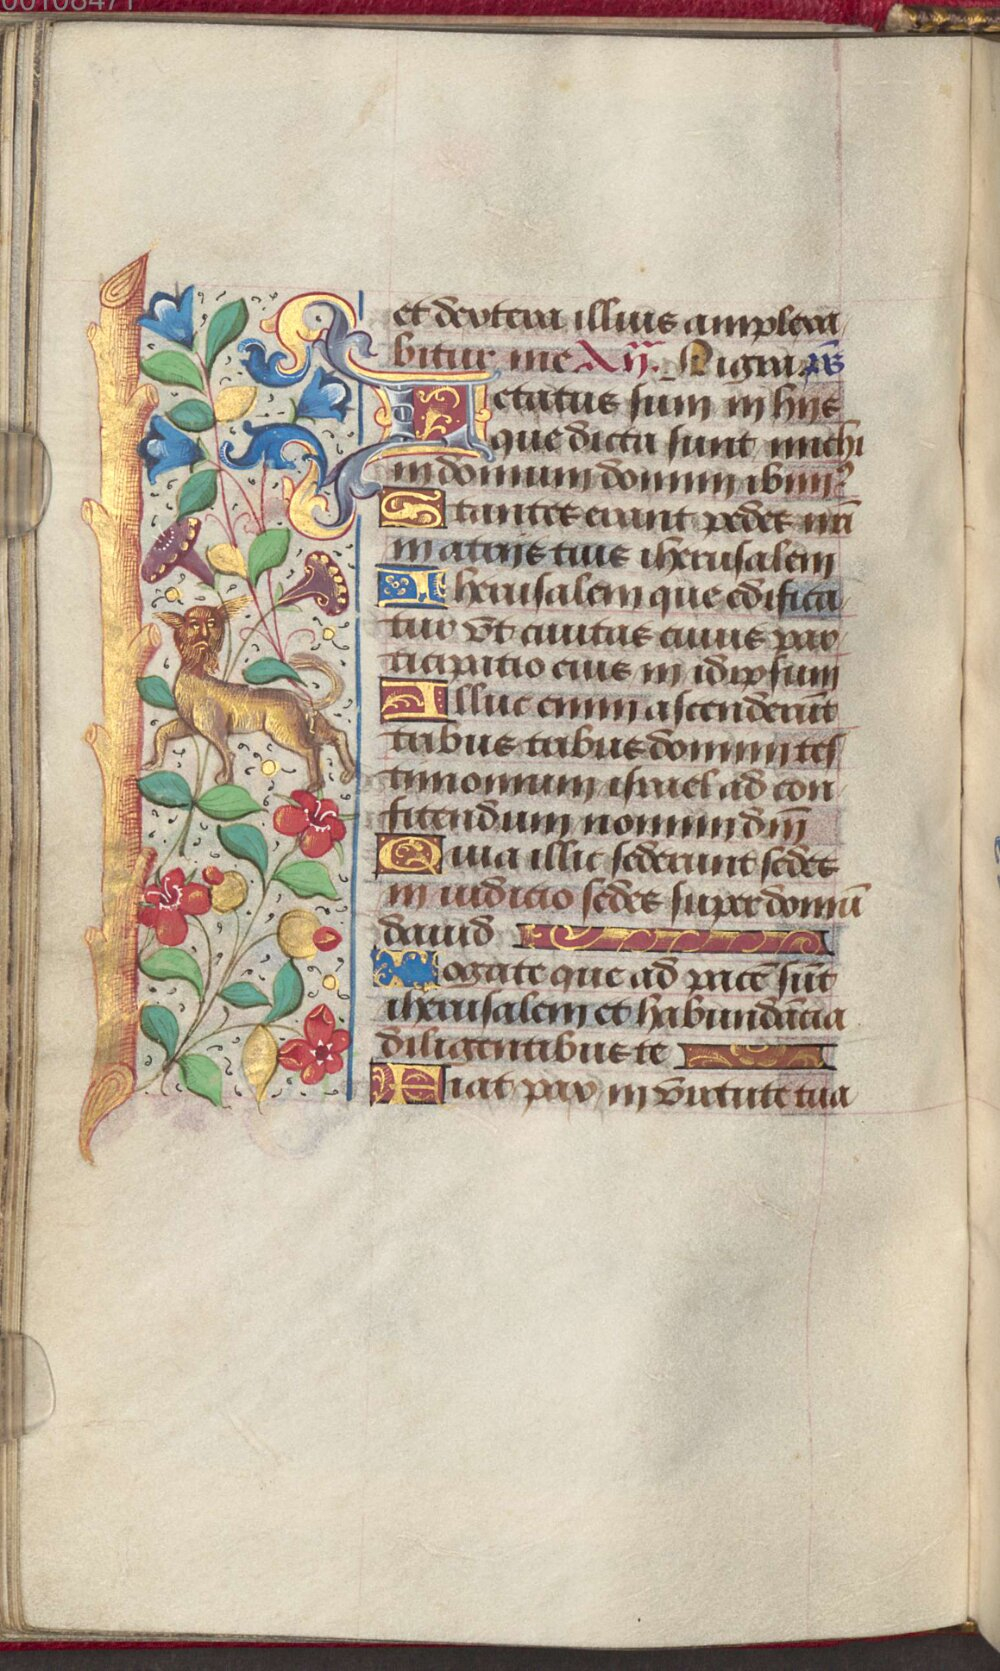 00108471
et dextera illius amplexa
bitur me Añ. Nigra ps
Letatus sum in hijs
que dicta sunt michi
in domum domini ibim9
Stantes erant pedes nr̃i
in atrijs tuis iherusalem
Iherusalem que edifica
tur vt ciuitas cuius par
ticipatio eius in idipsum
Illuc enim ascenderũt
tribus tribus domini tes
timonium israel ad con
fitendum nomini dñi
Quia illic sederunt sedes
in iudicio sedes super domũ
dauid
Rogate que ad pacẽ sũt
iherusalem et habundãcia
diligentibus te
Fiat pax in virtute tua